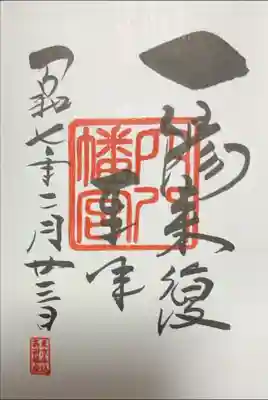 一陽来復
穴八
幡宮
令和七年二月廿三日